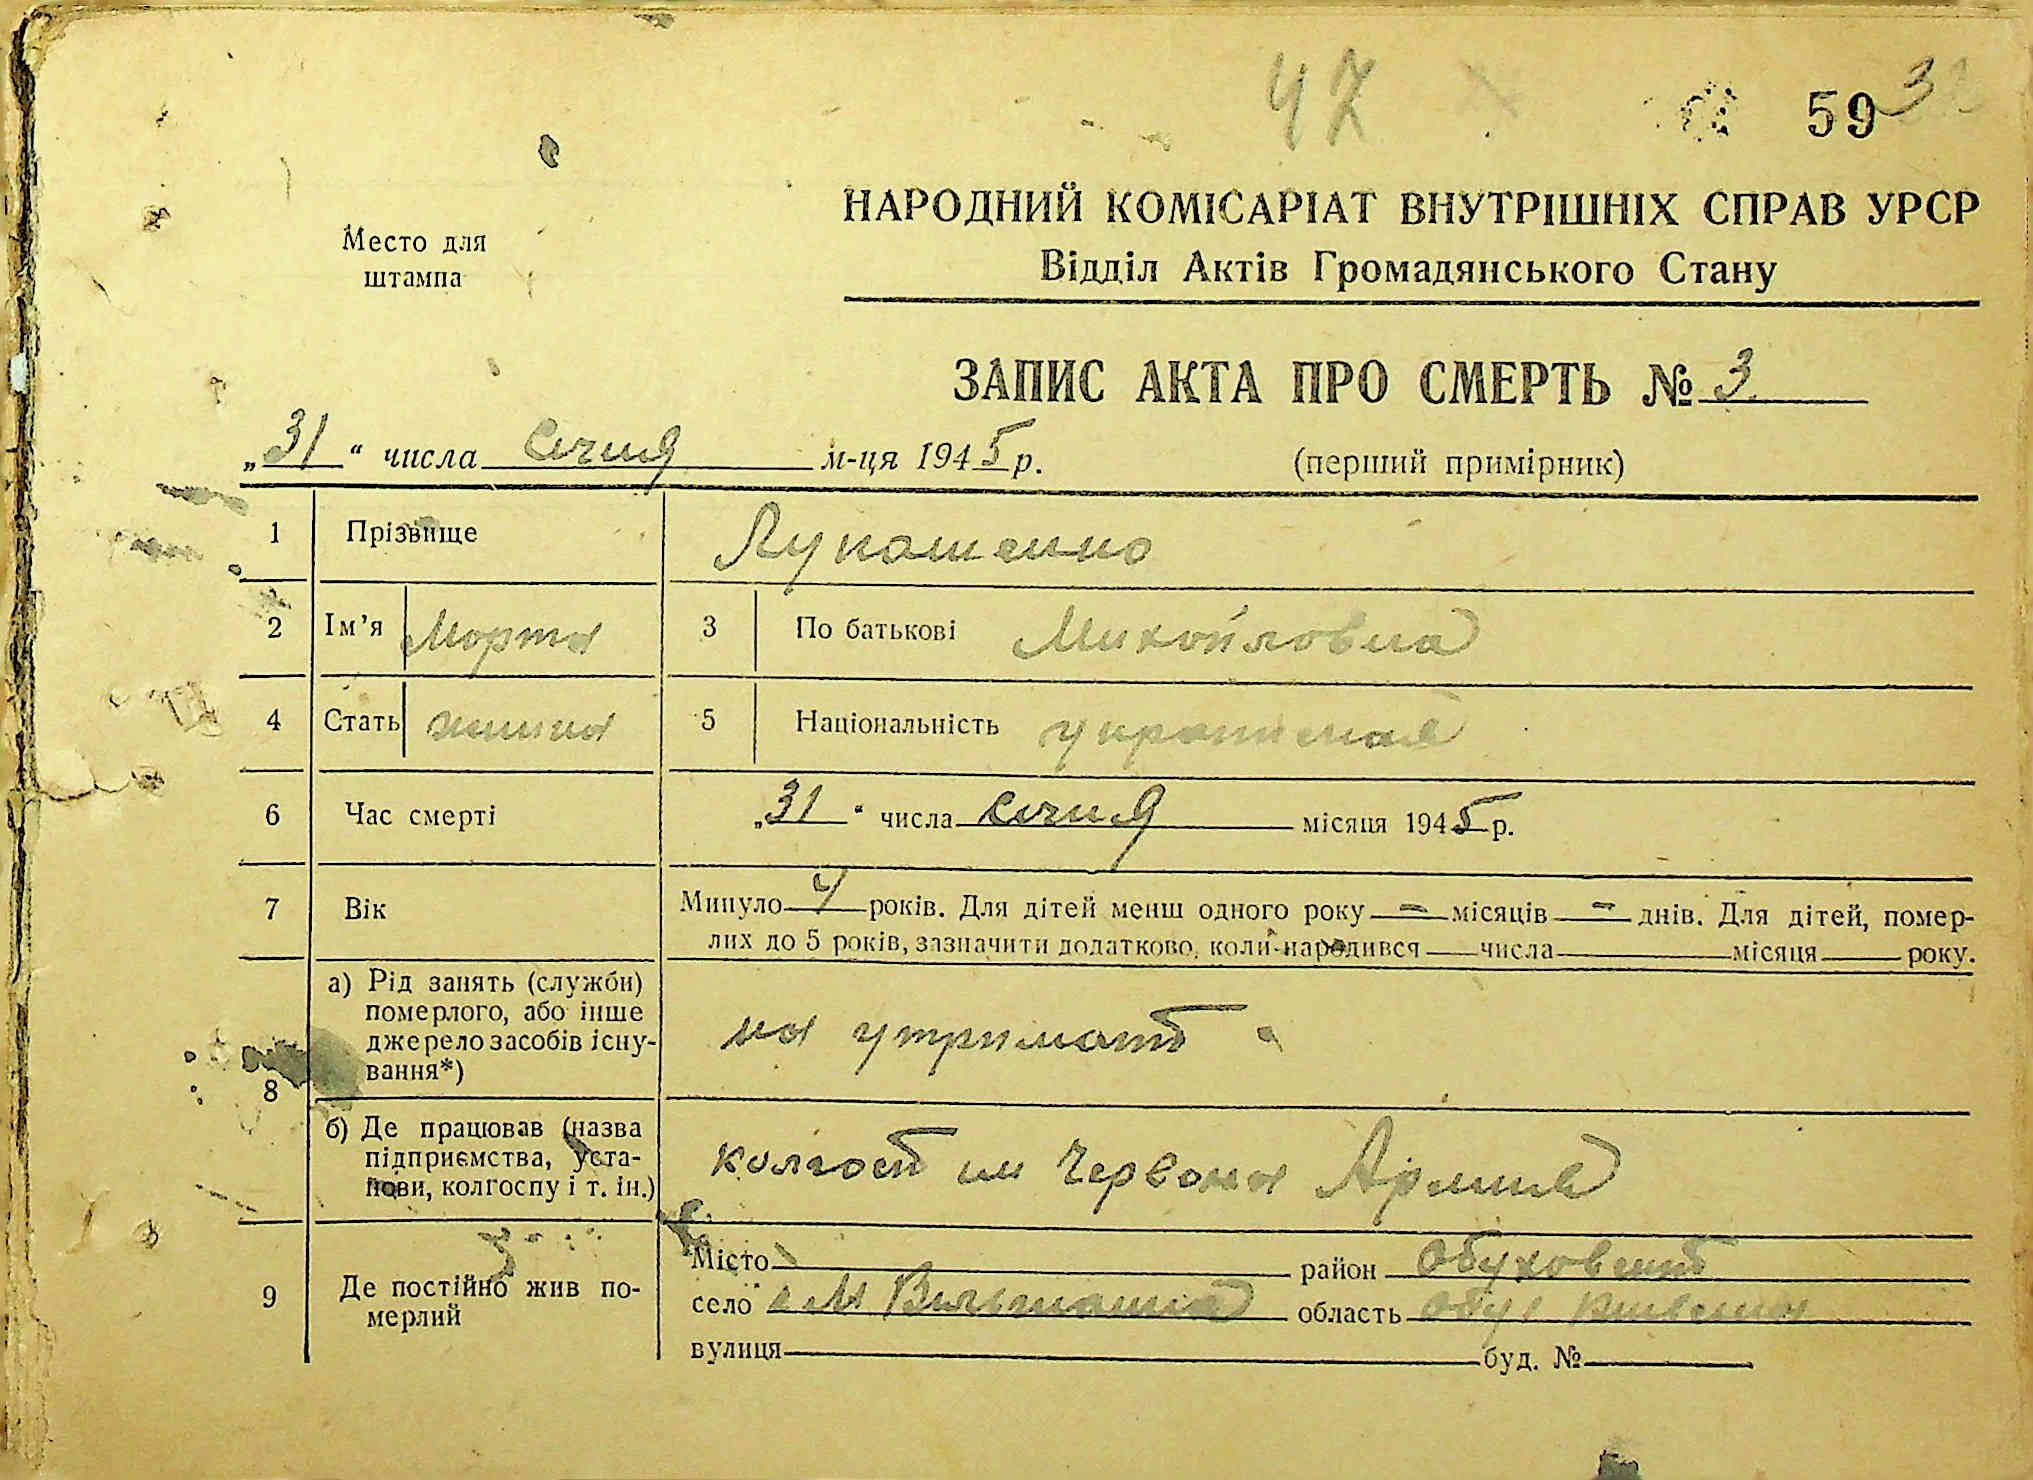 47
59 3
НАРОДНИЙ КОМІСАРІАТ ВНУТРІШНІХ СПРАВ УРСР
Відділ Актів Громадянського Стану
Место для
штампа
ЗАПИС АКТА ПРО СМЕРТЬ № 3
„31“ числа Січня м-ця 1945 р. (перший примірник)
1 Прізвище Лукашенко
2 Ім’я Марта 3 По батькові Михайловна
4 Стать жіноча 5 Національність
6 Час смерті „31“ числа січня місяця 1945 р.
7 Вік Минуло 4 років. Для дітей менш одного року — місяців — днів. Для дітей, помер-
лих до 5 років, зазначити додатково, коли народився числа місяця року.
8 а) Рід занять (служби)
померлого, або інше
джерело засобів існу-
вання*)
на утриманї
б) Де працював (назва
підприємства, уста-
нови, колгоспу і т. ін.)
колгосп им Червона Армия
9 Де постійно жив по-
мерлий
Місто район Обуховский
село область
вулиця буд. №